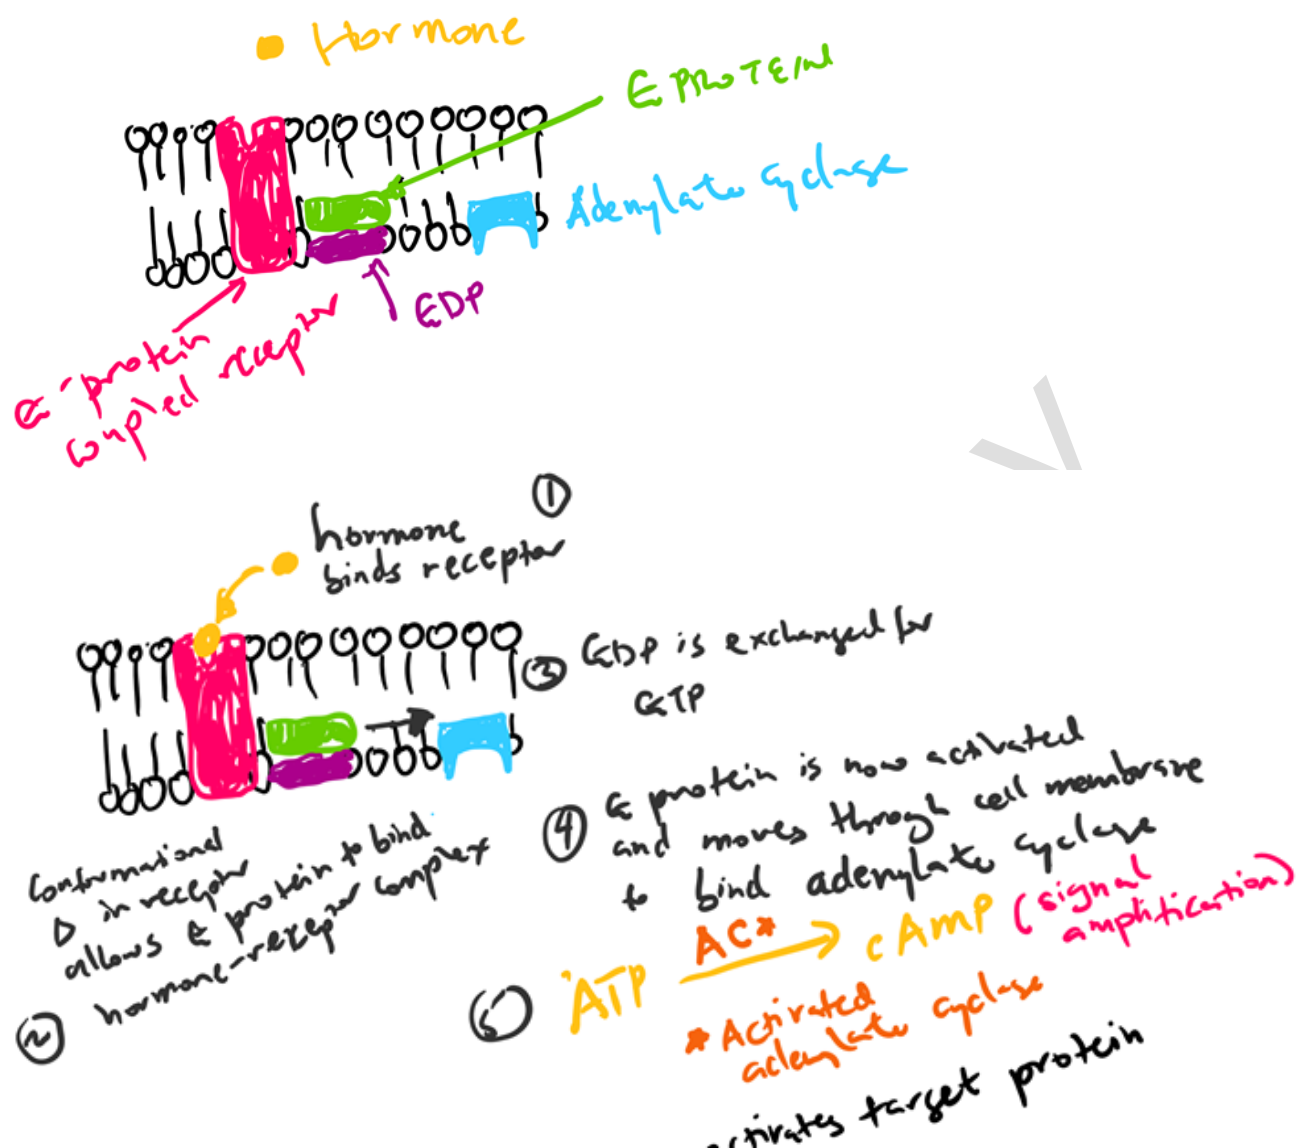 Hormone
G PROTEIN
Adenylate cyclase
GDP
G-protein
coupled receptor
①
hormone
binds receptor
③ GDP is exchanged for
GTP
④ G protein is now activated
and moves through cell membrane
to bind adenylate cyclase
conformational
Δ in receptor
allows G protein to bind
② hormone-receptor complex
⑤ ATP AC* cAMP (signal
amplification)
* Activated
adenylate cyclase
activates target protein